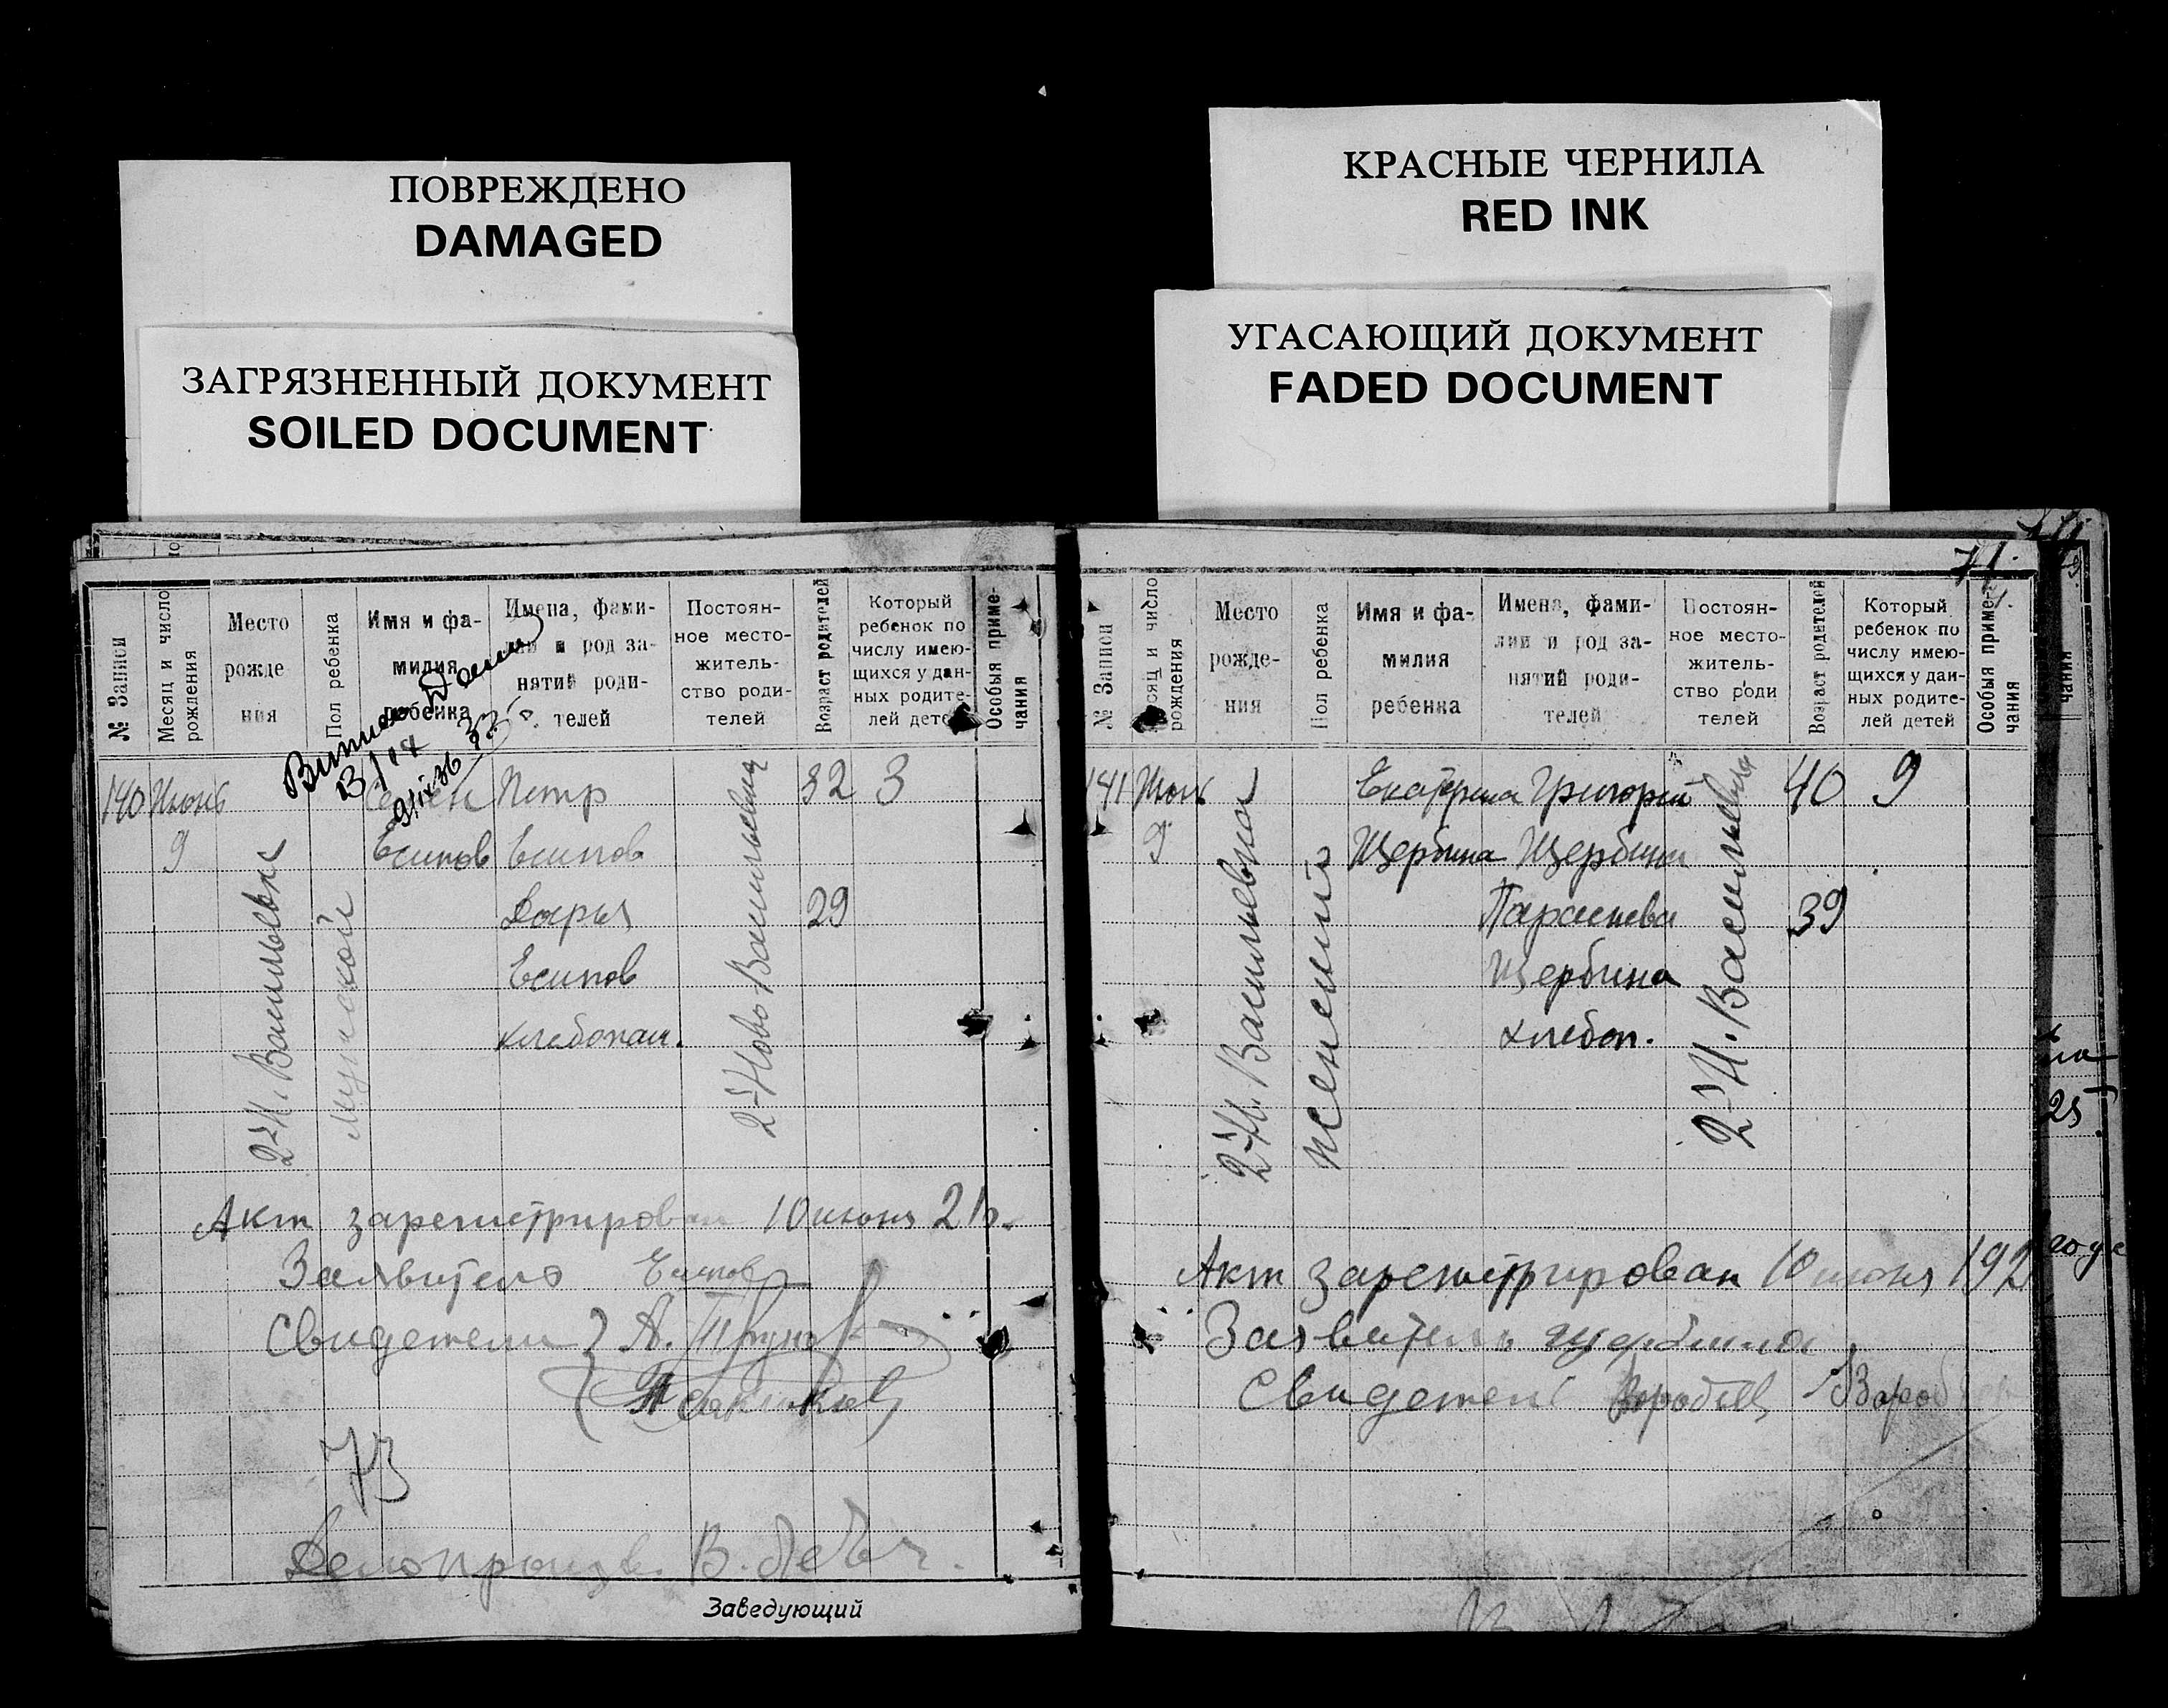 ПОВРЕЖДЕНО
DAMAGED
ЗАГРЯЗНЕННЫЙ ДОКУМЕНТ
SOILED DOCUMENT
КРАСНЫЕ ЧЕРНИЛА
RED INK
УГАСАЮЩИЙ ДОКУМЕНТ
FADED DOCUMENT
№ Записи
Месяц и число рождения
Место
рожде
ния
Пол ребенка
Имя и фа-
милия
ребенка
Имена, фами-
лии и род за-
нятий роди-
телей
Постоян-
ное место-
житель-
ство роди-
телей
Возраст родителей
Который
ребенок по
числу имею-
щихся у дан-
ных родите-
лей детей
Особыя приме-
чания
140 Июнь Петр 32 3
9 Есипов Есипов
Дарья 29
Есипов
хлебопаш.
2-Н. Васильевка
мужской
2-Ново Васильевка
Акт зарегистрирован 10 июня 21г.
Заявитель Есипов
Свидетели А.
73
Делопроизв. В.
Заведующий
71.
№ Записи
Месяц и число
рождения
Место
рожде-
ния
Пол ребенка
Имя и фа-
милия
ребенка
Имена, фами-
лии и род за-
нятий роди-
телей
Постоян-
ное место-
житель-
ство роди
телей
Возраст родителей
Который
ребенок по
числу имею-
щихся у дан-
ных родите-
лей детей
Особыя приме-
чания
141 Июнь Екатерина Григорий 40 9
9 Щербина Щербина
Парасковia 39
Щербина
хлебоп.
2-Н. Васильевка
женский
2-Н. Васильевка
Акт зарегистрирован 10 июня 192
Заявитель Щербина
Свидетель
чания
25
года